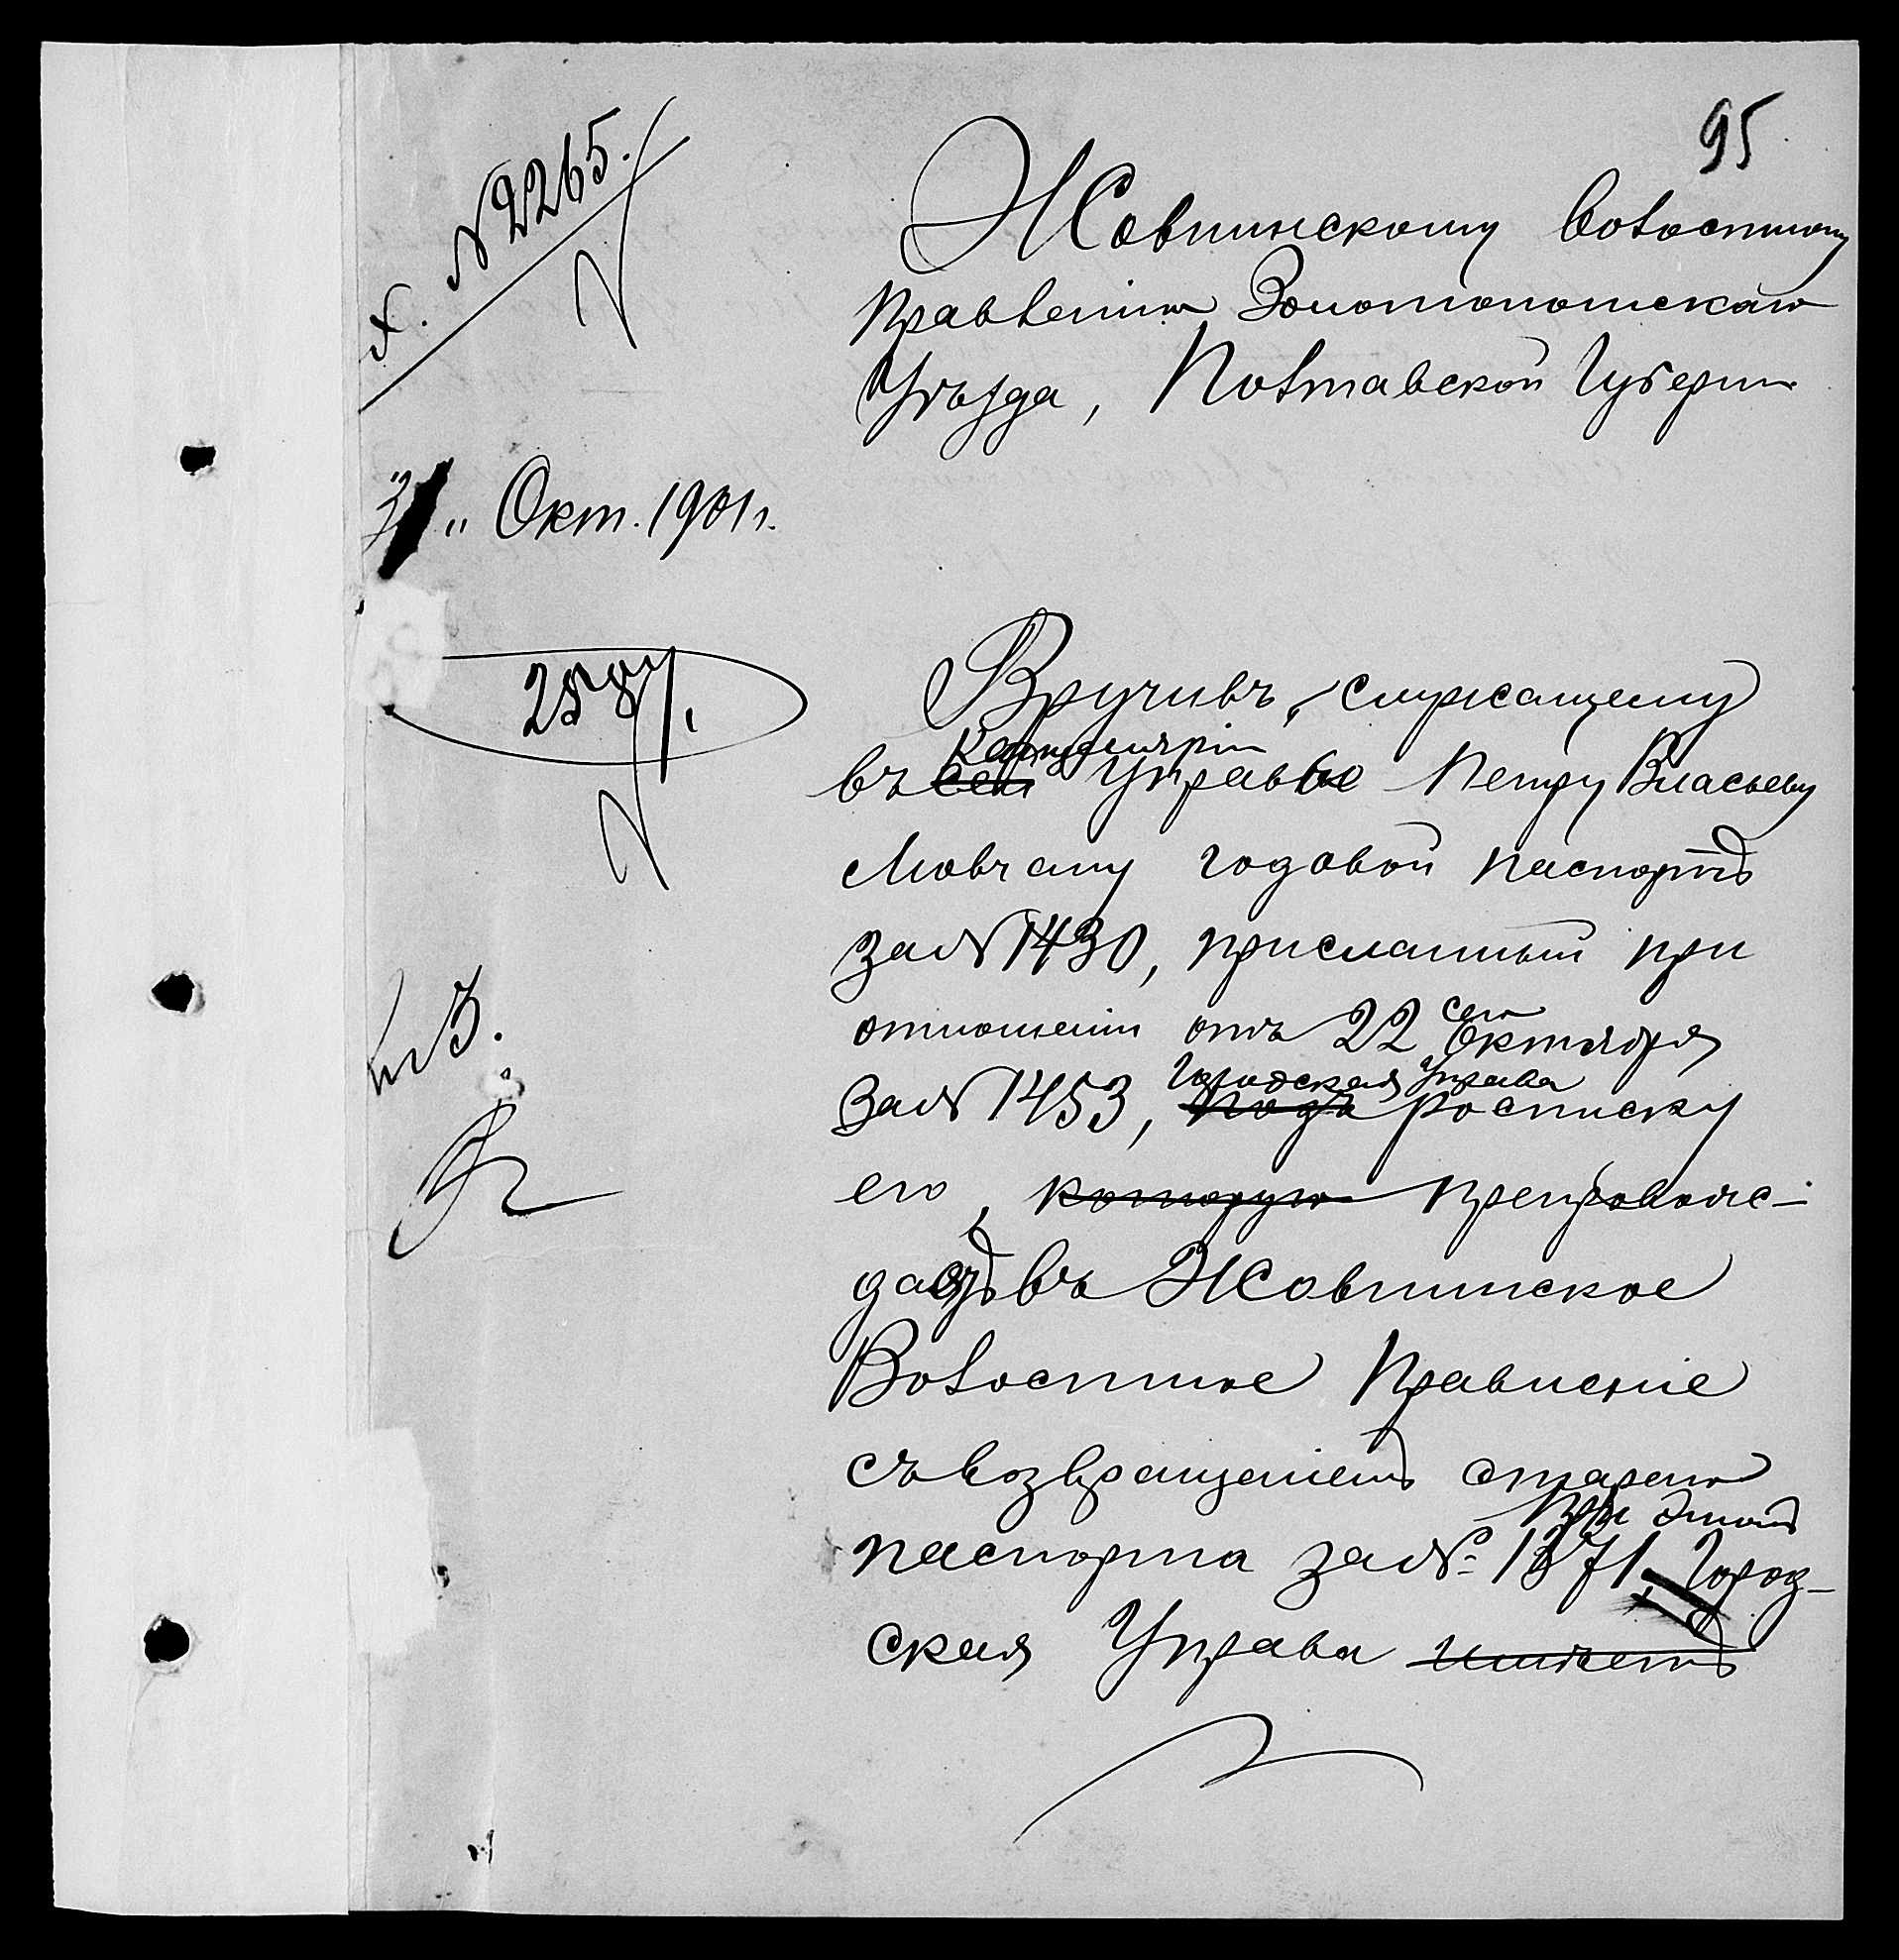 95
№ 2265.
Жовнинскому Волостному
Правленію Золотоношскаго
Уѣзда, Полтавской Губерніи
" Окт. 1901 г.
2587.
Вручивъ, служащему
Канцеляріи
въ сей Управы Петру Власьеву
Мовчану годовой паспортъ
за № 1430, присланный при
отношеніи отъ 22 сего Октября
Городская Управа
за № 1453, подъ росписку
его, которую препровож-
даетъ въ Жовнинское
Волостное Правленіе
съ возвращеніемъ стараго
при этомъ
паспорта за № 1371. Город-
ская Управа имѣетъ